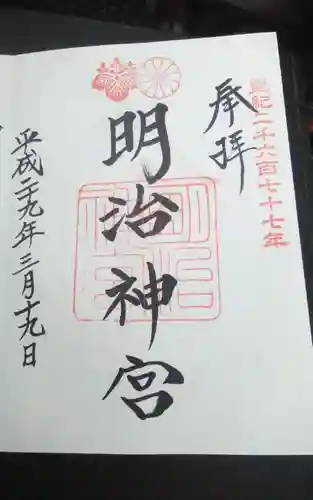 皇紀二千六百七十七年
奉拝
明治神宮
平成二十九年三月十九日